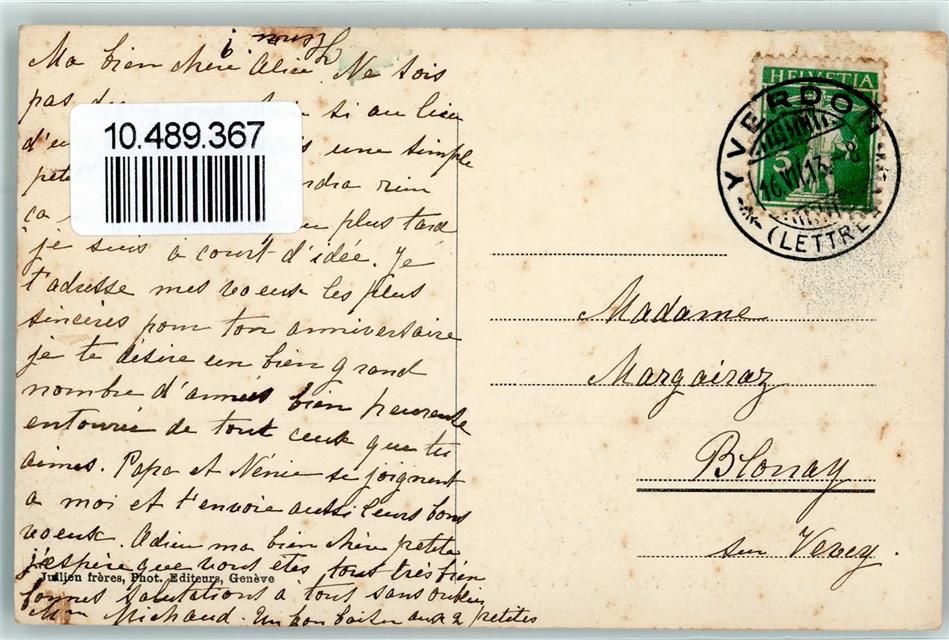 Ma bien chère Alice, Ne sois
pas si au lieu
d'
une simple
rien
ça plus tard
je suis à court d'idée. Je
t'adresse mes voeux les plus
sincères pour ton anniversaire
je te désire un bien grand
nombre d'années bien heureuse
entourée de tout ceux que tu
aimes. Papa et Nénie se joignent
a moi et t'envoie aussi leurs bons
voeux. Adieu ma bien chère petite
j'espère que vous êtes tout très bien
Jullien frères, Phot. Editeurs, Genève
bonnes salutations à tout sans oublier
Mme Michaud. Un bon baiser aux 2 petites
10.489.367
HELVETIA
5
YVERDON
16.VII.13.-8
(LETTRE
Madame
Margairaz
Blonay
sur Vevey.